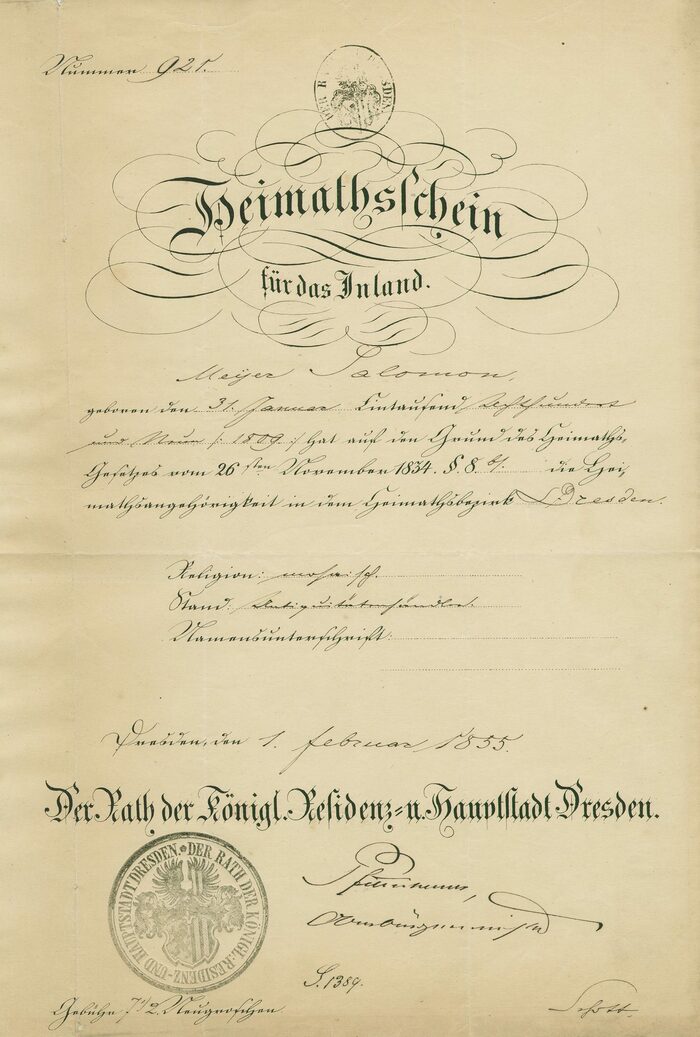 Nummer 921.
DER RATH DRESDEN
Heimathsschein
für das Inland.
Meijer Salomon,
geboren den 31. Januar Eintausend Achthundert
und Neun /: 1809 :/ hat auf den Grund des Heimaths-
Gesetzes vom 26sten November 1834. §. 8. b/. die Hei-
mathsangehörigkeit in dem Heimathsbezirk Dresden.
Religion: mosaisch.
Stand: Antiquitätenhändler.
Namensunterschrift:
Dresden, den 1. Februar 1855.
Der Rath der Königl. Residenz- u. Hauptstadt Dresden.
DER RATH DER KÖNIGL. RESIDENZ- UND HAUPTSTADT DRESDEN.
Pfotenhauer,
Oberbürgermeister
S. 1389.
Gebühr 7 1/2 Neugroschen.
Schott.